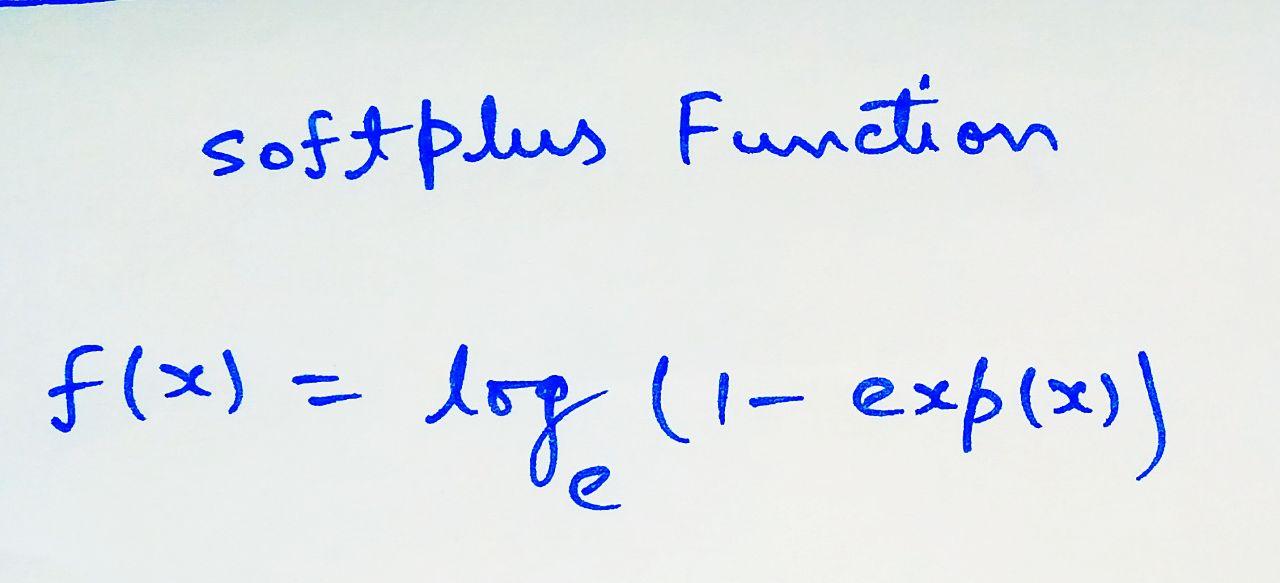 softplus Function
f(x) = log_e (1 - exp(x))